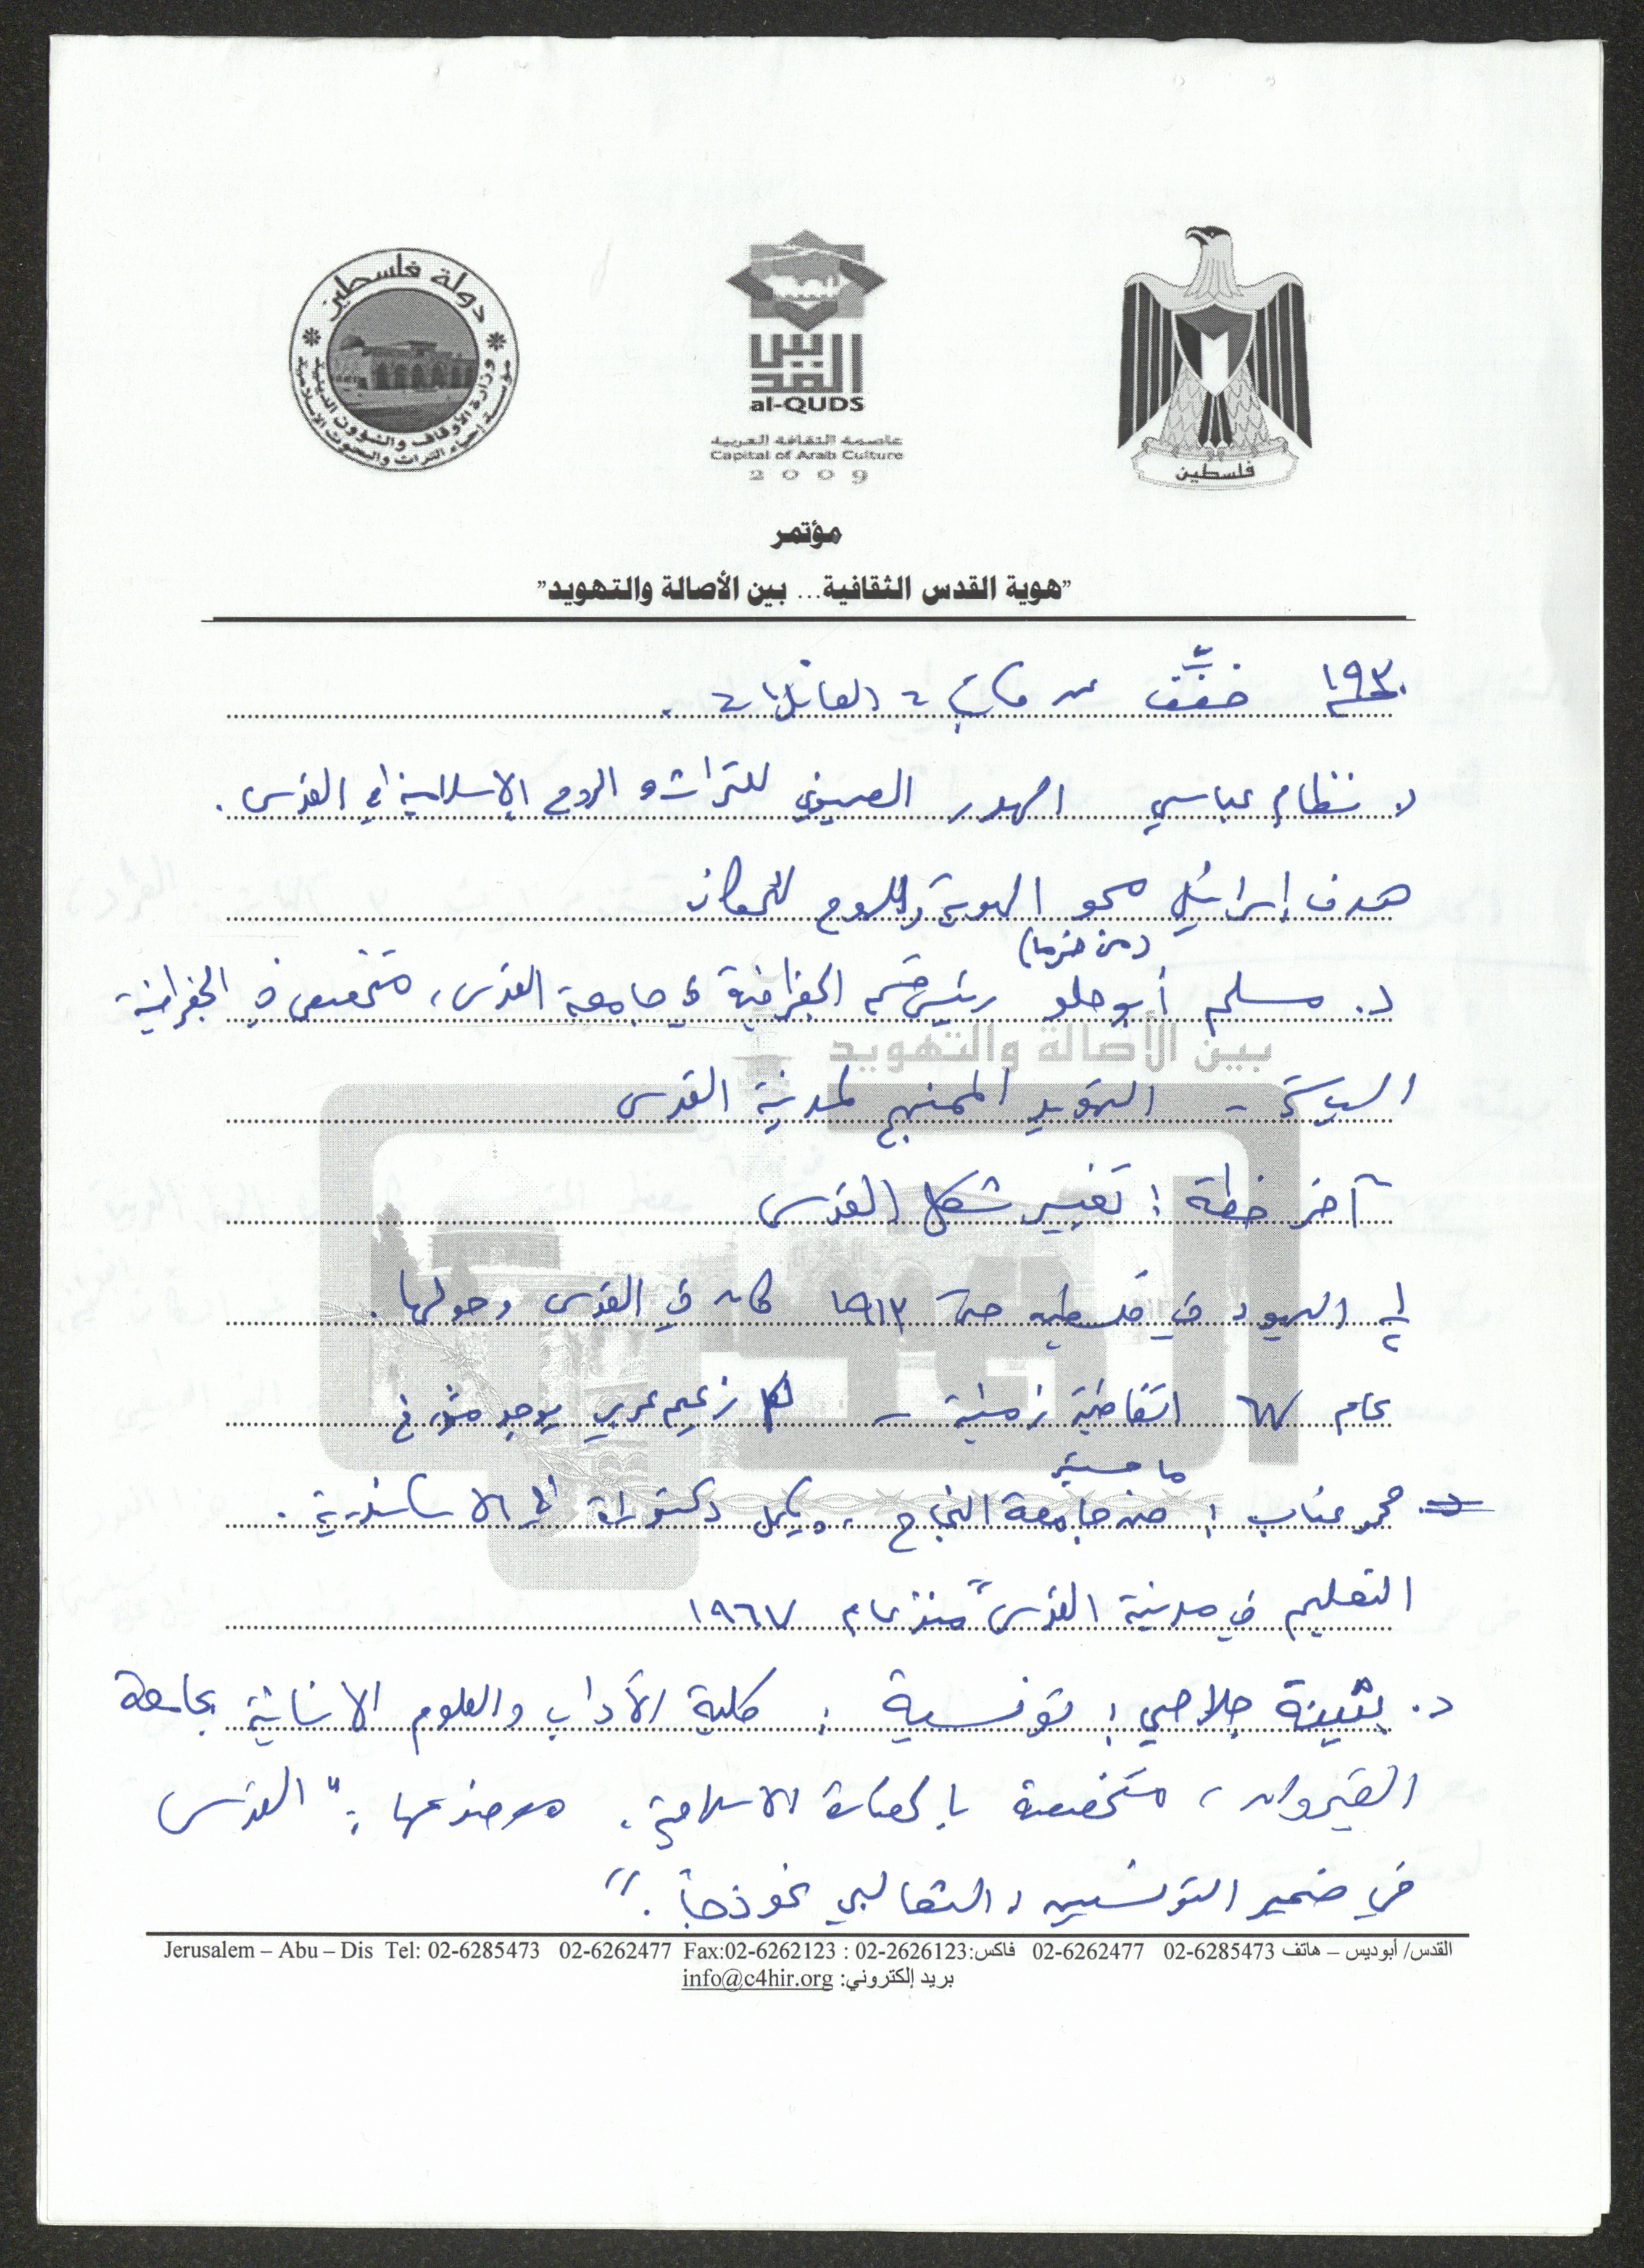 دولة فلسطين
وزارة الأوقاف والشؤون الدينية
مؤسسة إحياء التراث والبحوث الإسلامية
القدس
al-QUDS
عاصمة الثقافة العربية
Capital of Arab Culture
2009
فلسطين
مؤتمر
"هوية القدس الثقافية... بين الأصالة والتهويد"
١٩٣٠ خفّف من العائلات.
د نظام عباسي الصهيوني للتراث و الروح الإسلامية في القدس.
هدف إسرائيل محو الهوية والروح للمكان
(من خزما)
د. مسلم أبو حلو رئيس قسم الجغرافية في جامعة القدس، متخصص في الجغرافية
بين الأصالة والتهويد
السياسية - التهويد الممنهج لمدينة القدس
آخر خطة: تغيير شكل القدس
١/٢ اليهود في فلسطين حتى ١٩١٣ كان في القدس وحولها.
عام ٦٧ زمنية - لكل زعيم عربي يوجد
ماجستير
محمد عناب: من جامعة النجاح، ويكمل دكتوراة في الاسكندرية.
التعليم في مدينة القدس" منذ عام ١٩٦٧
د. بثينة جلاصي: تونسية: كلية الآداب والعلوم الانسانية بجامعة
القيروان، متخصصة بالحضارة الاسلامية. موضوعها: "القدس
في ضمير التونسيين، الثعالبي نموذجاً."
القدس/ أبوديس – هاتف 02-6285473 02-6262477 فاكس:02-2626123 : Jerusalem – Abu – Dis Tel: 02-6285473 02-6262477 Fax:02-6262123
بريد إلكتروني: info@c4hir.org